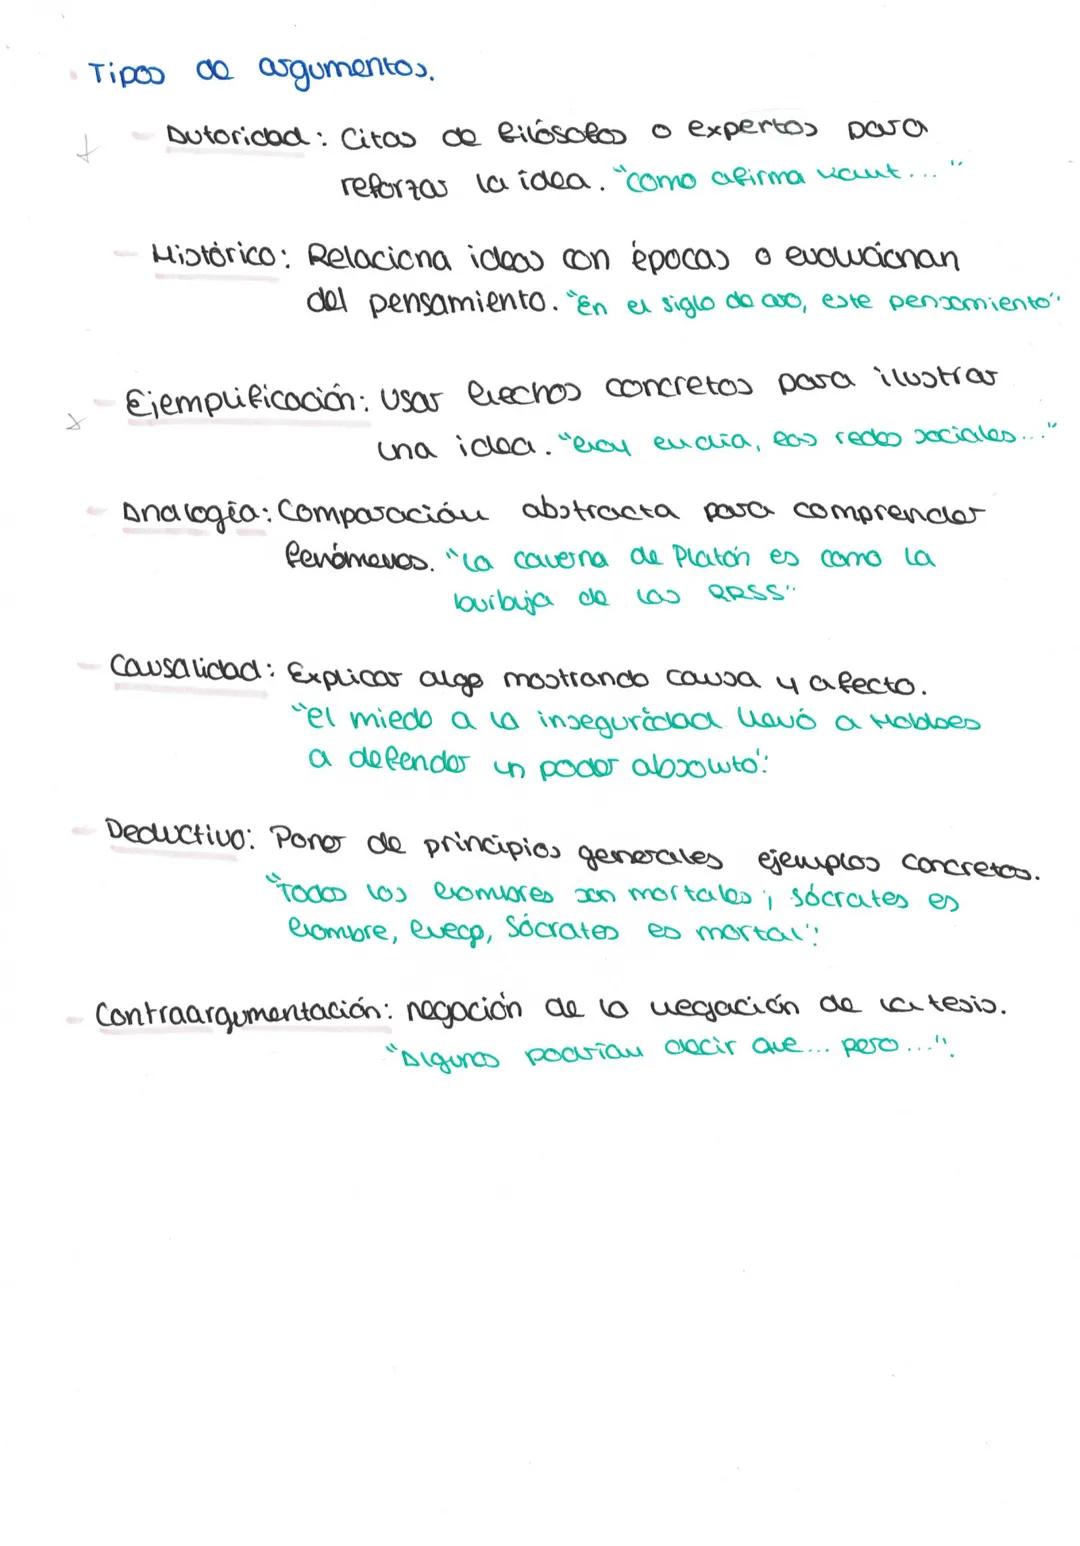 Tipos de argumentos.
Autoridad: Citas de filósofos o expertos para
reforzar la idea. "como afirma Kant..."
Histórico: Relaciona ideas con épocas o evoluciónan
del pensamiento. "En el siglo de oro, este pensamiento"
Ejemplificación: Usar hechos concretos para ilustrar
una idea. "hoy en dia, las redes sociales..."
Analogía: Comparación abstracta para comprender
fenómenos. "La caverna de Platón es como la
burbuja de las RRSS"
Causalidad: Explicar algo mostrando causa y afecto.
"el miedo a la inseguridad llevó a Hobbes
a defender un poder absoluto".
Deductivo: Poner de principios generales ejemplos concretos.
"Todos los hombres son mortales; Sócrates es
hombre, luego, Sócrates es mortal".
Contraargumentación: negación de la negación de la tesis.
"Algunos podrían decir que... pero...".